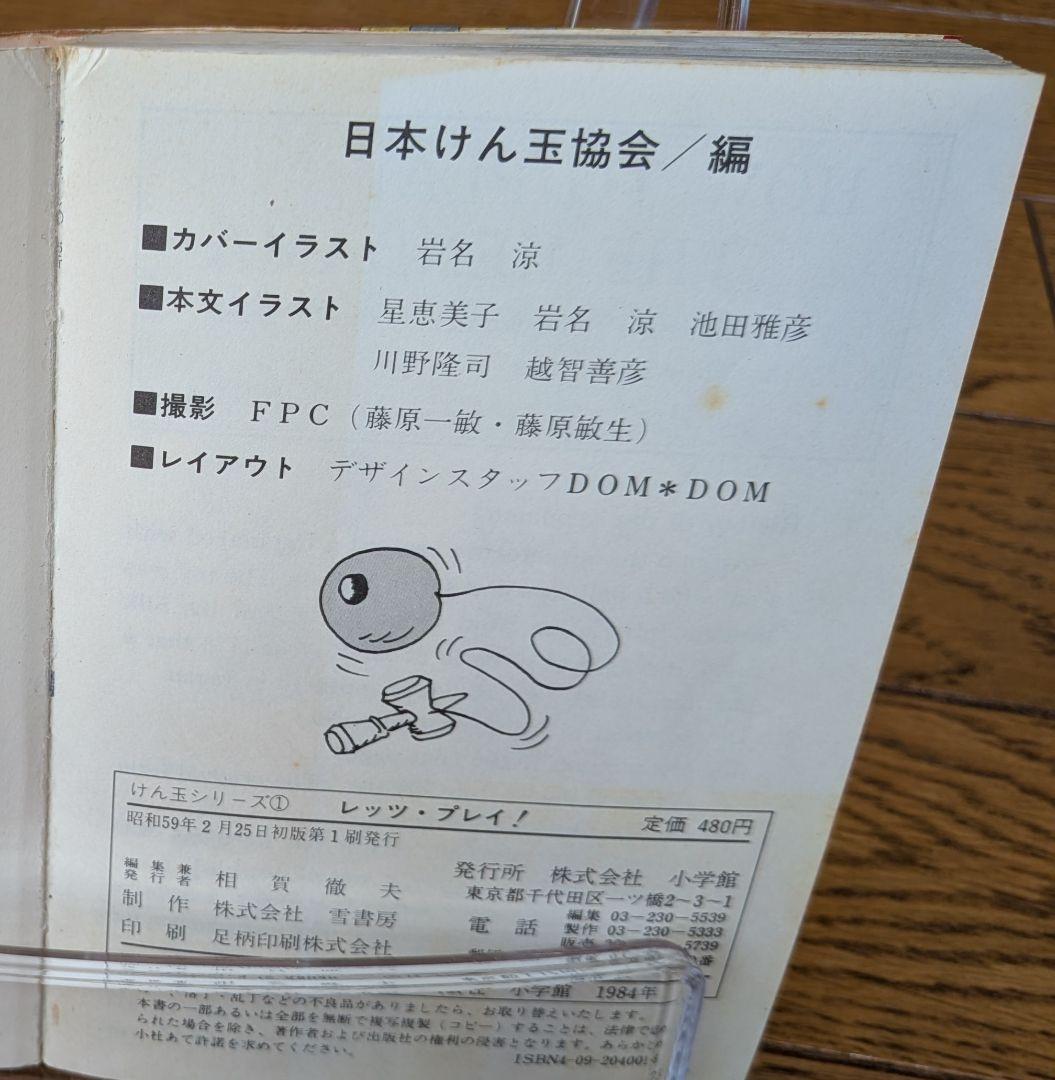 日本けん玉協会／編
■カバーイラスト 岩名 涼
■本文イラスト 星恵美子 岩名 涼 池田雅彦
川野隆司 越智善彦
■撮影 FPC（藤原一敏・藤原敏生）
■レイアウト デザインスタッフDOM＊DOM
けん玉シリーズ① レッツ・プレイ！ 定価 480円
昭和59年2月25日初版第1刷発行
編集兼発行者 相賀徹夫
制作 株式会社 雪書房
印刷 足柄印刷株式会社
発行所 株式会社 小学館
東京都千代田区一ツ橋2－3－1
電話 編集 03－230－5539
製作 03－230－5333
販売 5739
小学館 1984年
乱丁などの不良品がありましたら、お取り替えいたします。
本書の一部あるいは全部を無断で複写複製（コピー）することは、法律で
られた場合を除き、著作者および出版社の権利の侵害となります。あらか
小社あて許諾を求めてください。
ISBN4-09-204001